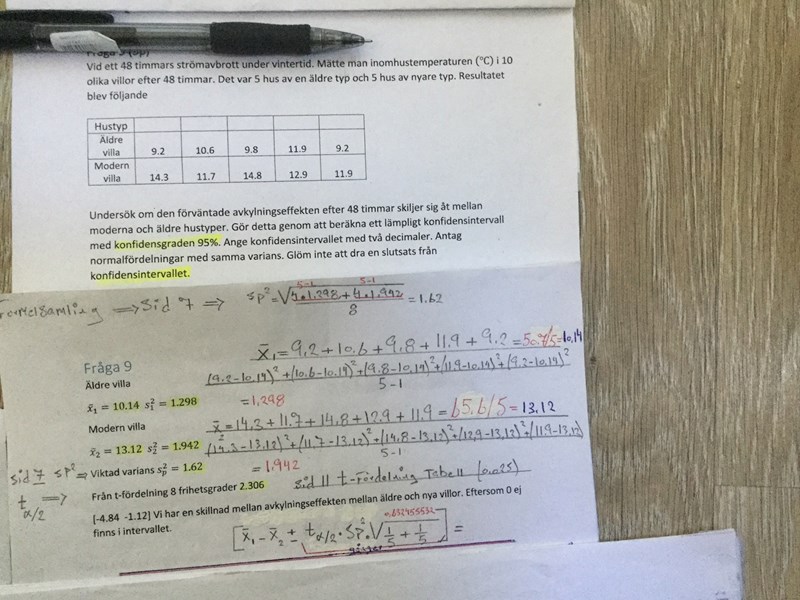 Vid ett 48 timmars strömavbrott under vintertid. Mätte man inomhustemperaturen (°C) i 10
olika villor efter 48 timmar. Det var 5 hus av en äldre typ och 5 hus av nyare typ. Resultatet
blev följande
Hustyp
Äldre villa 9.2 10.6 9.8 11.9 9.2
Modern villa 14.3 11.7 14.8 12.9 11.9
Undersök om den förväntade avkylningseffekten efter 48 timmar skiljer sig åt mellan
moderna och äldre hustyper. Gör detta genom att beräkna ett lämpligt konfidensintervall
med konfidensgraden 95%. Ange konfidensintervallet med två decimaler. Antag
normalfördelningar med samma varians. Glöm inte att dra en slutsats från
konfidensintervallet.
5-1 5-1
⇒ sid 7 ⇒ sp²=√(4·1.298 + 4·1.942)/8 = 1.62
x̄₁=9.2+10.6+9.8+11.9+9.2=50.7/5=10.14
Fråga 9
Äldre villa (9.2-10.14)²+(10.6-10.14)²+(9.8-10.14)²+(11.9-10.14)²+(9.2-10.14)²
5-1
x̄₁ = 10.14 s₁² = 1.298 =1.298
Modern villa x̄=14.3+11.7+14.8+12.9+11.9=65.6/5=13.12
(14.3-13.12)²+(11.7-13.12)²+(14.8-13.12)²+(12.9-13.12)²+(11.9-13.12)²
5-1
x̄₂ = 13.12 s₂² = 1.942
sid 7 sp² ⇒ Viktad varians sₚ² = 1.62 = 1.942
sid 11 t-Fördelning Tabell (0.025)
t α/2 ⇒ Från t-fördelning 8 frihetsgrader 2.306
[-4.84 -1.12] Vi har en skillnad mellan avkylningseffekten mellan äldre och nya villor. Eftersom 0 ej
finns i intervallet.
0.632455532
[x̄₁-x̄₂ ± t α/2 · sp² · √1/5 + 1/5] =